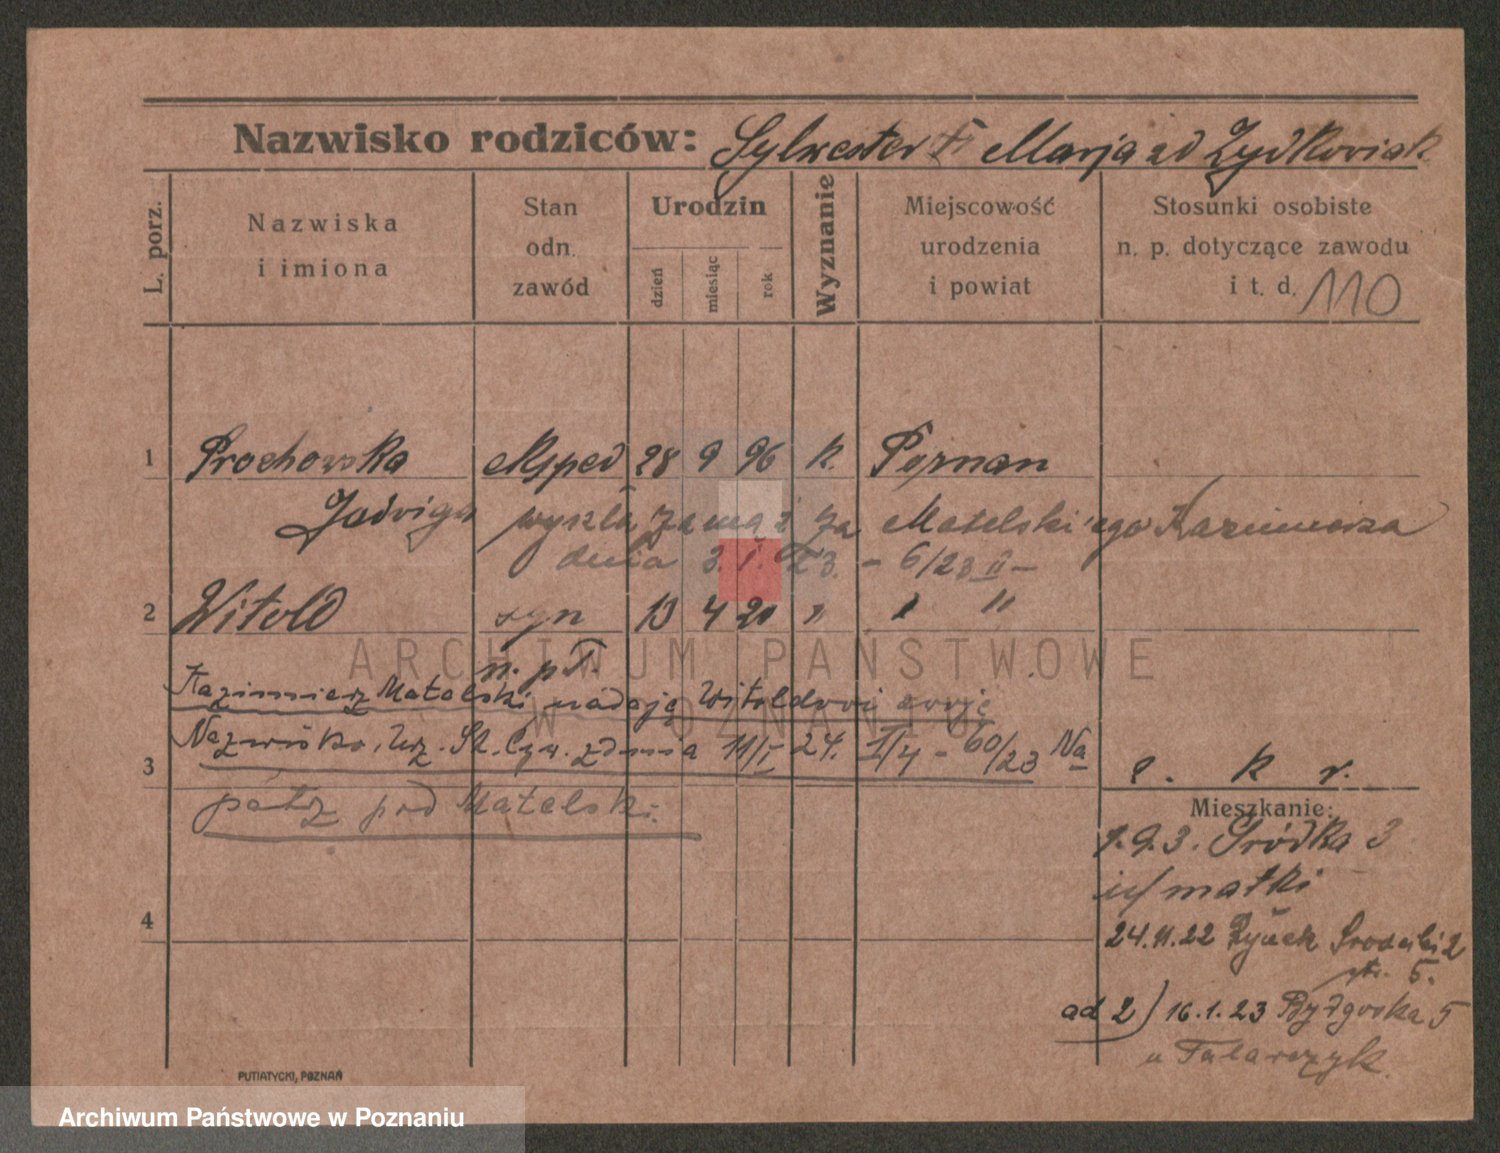 Nazwisko rodziców: Sylwester Marja zd Zydkowiak
L. porz.
Nazwiska i imiona
Stan odn. zawód
Urodzin
dzień
miesiąc
rok
Wyznanie
Miejscowość urodzenia i powiat
Stosunki osobiste n. p. dotyczące zawodu i t. d. 110
1 Prochowska eksped 28 9 96 k. Poznan
Jadwiga wyszła zamąż za Matelskiego Kazimierza
dnia 3. I. 23. – 6/23 II –
2 Witold syn 13 4 20 " " "
n. pł.
Kazimierz Matelski nadaje Witoldowi swoje
Nazwisko. Urz. St. Cyw. z dnia 11/I 24. I/4 - 60/23 Na
3
patrz pod Matelski.
e. k r.
Mieszkanie:
1.9.3. Sródka 3
u/ matki
4
24.11.22 Rynek Srodecki 2
str. 5.
ad 2) 16.1.23 Bydgoska 5
u Talarczyk.
PUTIATYCKI, POZNAŃ
ARCHIWUM PAŃSTWOWE
W POZNANIU
Archiwum Państwowe w Poznaniu